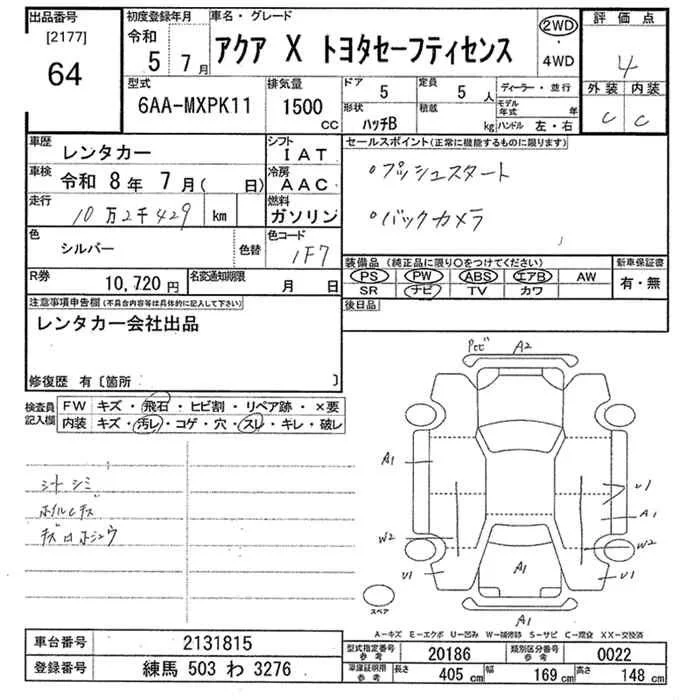 出品番号
[2177]
64
初度登録年月
令和
5 7月
車名・グレード
アクア X トヨタセーフティセンス
2WD
・
4WD
評価点
4
外装 内装
C C
型式
6AA-MXPK11
排気量
1500
CC
ドア
5
定員
5 人
形状
ハッチB
積載
kg
ディーラー・並行
モデル年式 年
ハンドル 左・右
車歴
レンタカー
シフト
IAT
車検
令和 8年 7月( 日)
冷房
AAC
走行
10万2千429 km
燃料
ガソリン
色
シルバー
色替
色コード
1F7
R券
10,720円
名変通知期限
月 日
セールスポイント(正常に機能するものに限ります)
・プッシュスタート
・バックカメラ
装備品(純正品に限り○をつけてください)
PS PW ABS エアB AW
SR ナビ TV カワ
新車保証書
有・無
後日品
注意事項申告欄(不具合内容等は具体的に記入して下さい)
レンタカー会社出品
修復歴 有〔箇所 〕
検査員
記入欄
FW キズ・飛石・ヒビ割・リペア跡・×要
内装 キズ・汚レ・コゲ・穴・スレ・キレ・破レ
シートシミ
ホイルキズ
A2
A1
U1
A1
W2
W2
U1
U1
A1
A1
スペア
A-キズ E-エクボ U-凹み W-補修跡 S-サビ C-腐食 XX-交換済
車台番号
2131815
登録番号
練馬 503 わ 3276
型式指定番号
参考
20186
類別区分番号
参考
0022
車庫証明用
参考
長さ 405 cm 幅 169 cm 高さ 148 cm